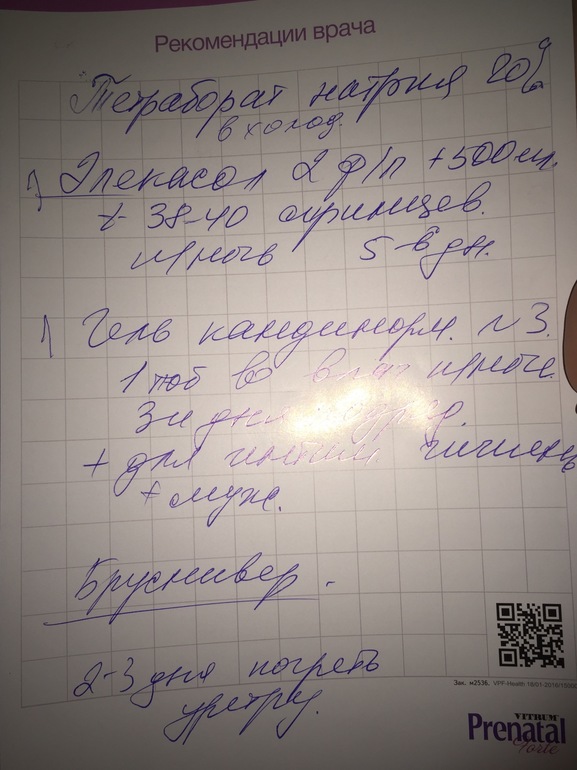 Рекомендации врача
Тетраборат натрия 20%
в холод.
Элекасол 2 ф/п + 500 мл.
t 38-40 спринцев.
н/ночь 5-6 дн.
1) Гель кандинорм. N3.
1 тюб во влаг н/ночь.
3и дня
+ для интим гигиены
+ муж.
Бруснивер.
2-3 дня погреть
уретру.
Зак. м2536. VPF-Health 18/01-2016/15000
VITRUM
Prenatal
forte